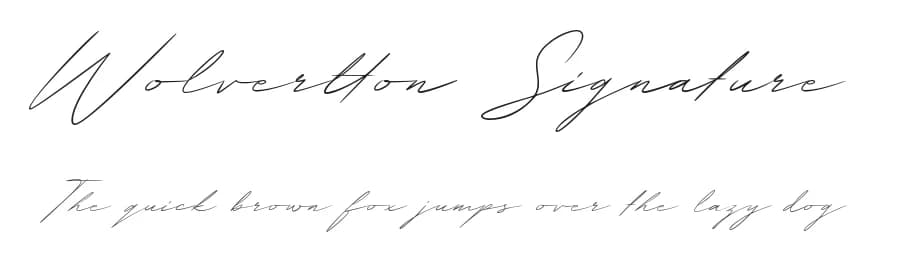 Wolvertton Signature
The quick brown fox jumps over the lazy dog